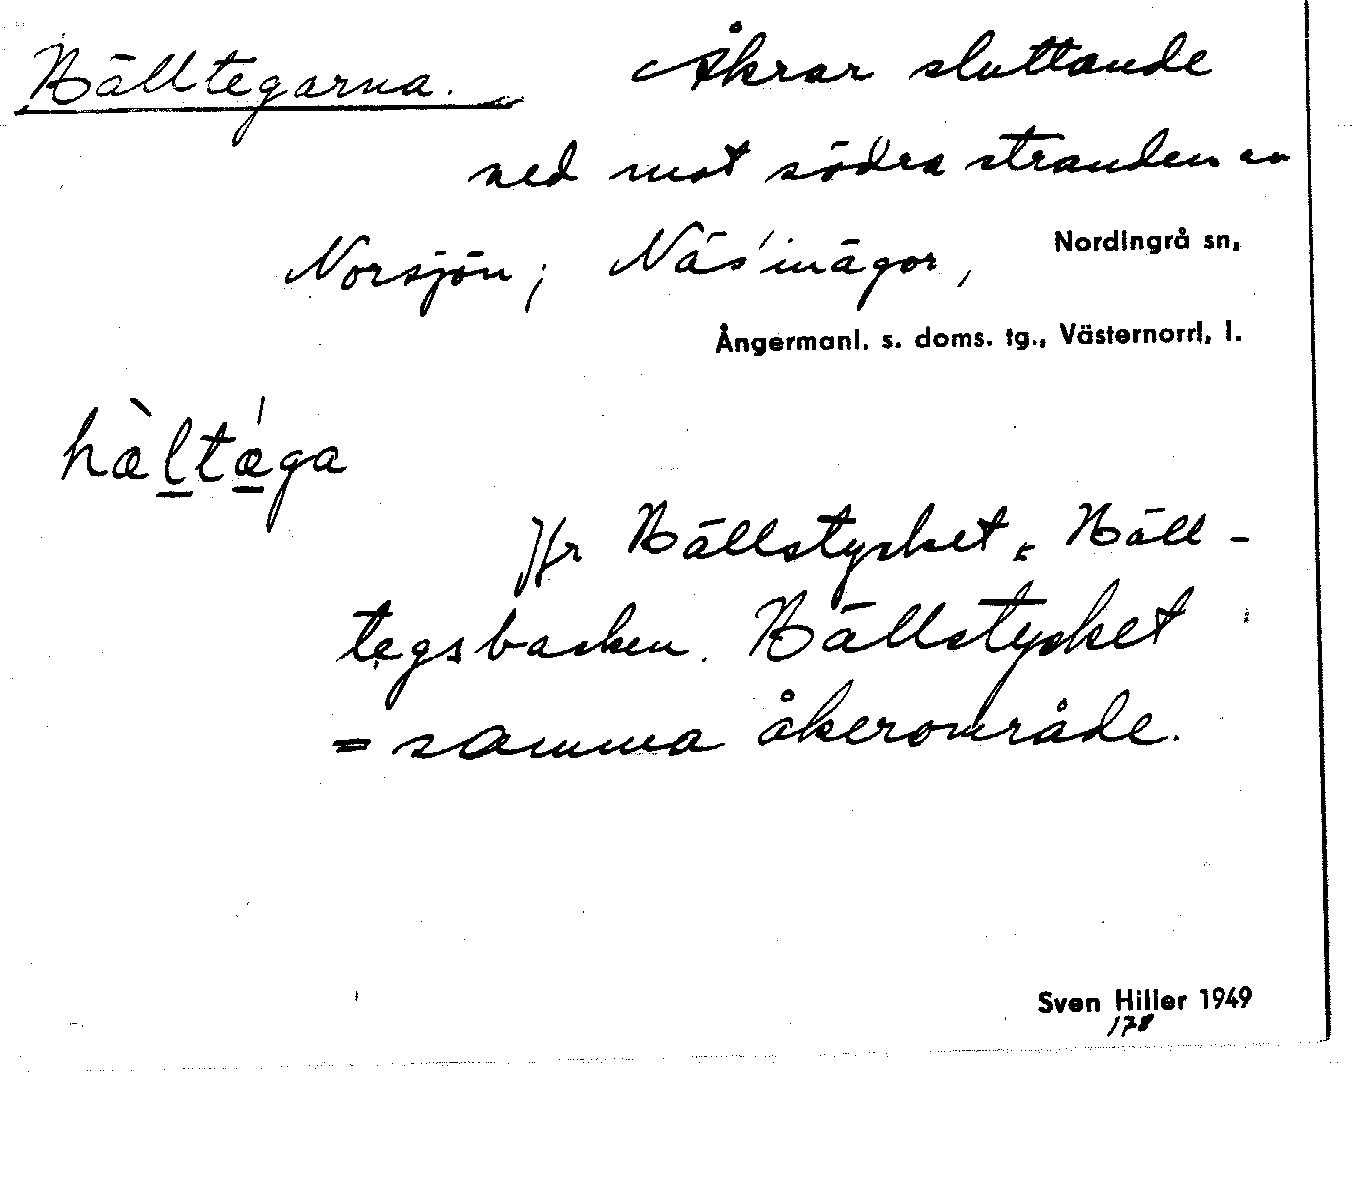 Hälltegarna. Åkrar sluttande
ned mot södra stranden av
Norsjön; Näs' inägor, Nordingrå sn,
Ångermanl. s. doms. tg., Västernorrl. l.
hæ̀ltǽga
Jfr Hällstycket, Häll-
tegsbacken. Hällstycket
= samma åkerområde.
Sven Hiller 1949
178